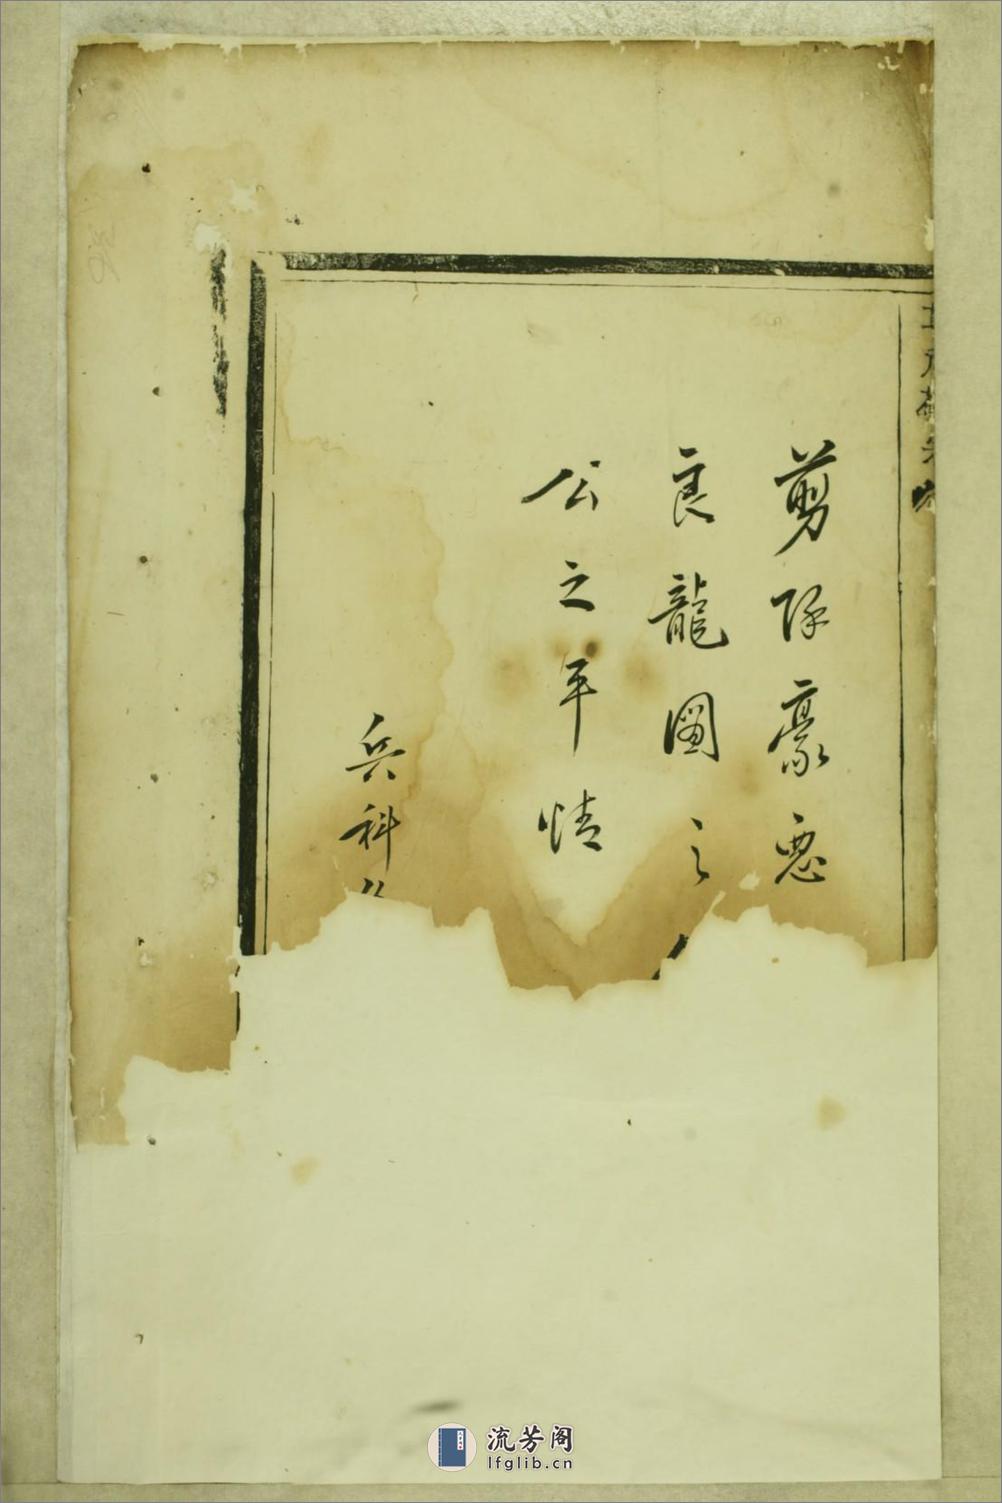 剪除豪惡
良龍圖之
公之平情
兵科
流芳阁
lfglib.cn